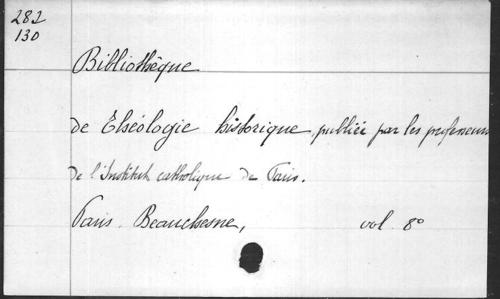 282
130
Bibliothèque
de Théologie historique publiée par les professeurs
de l'Institut catholique de Paris.
Paris. Beauchesne, vol. 8°